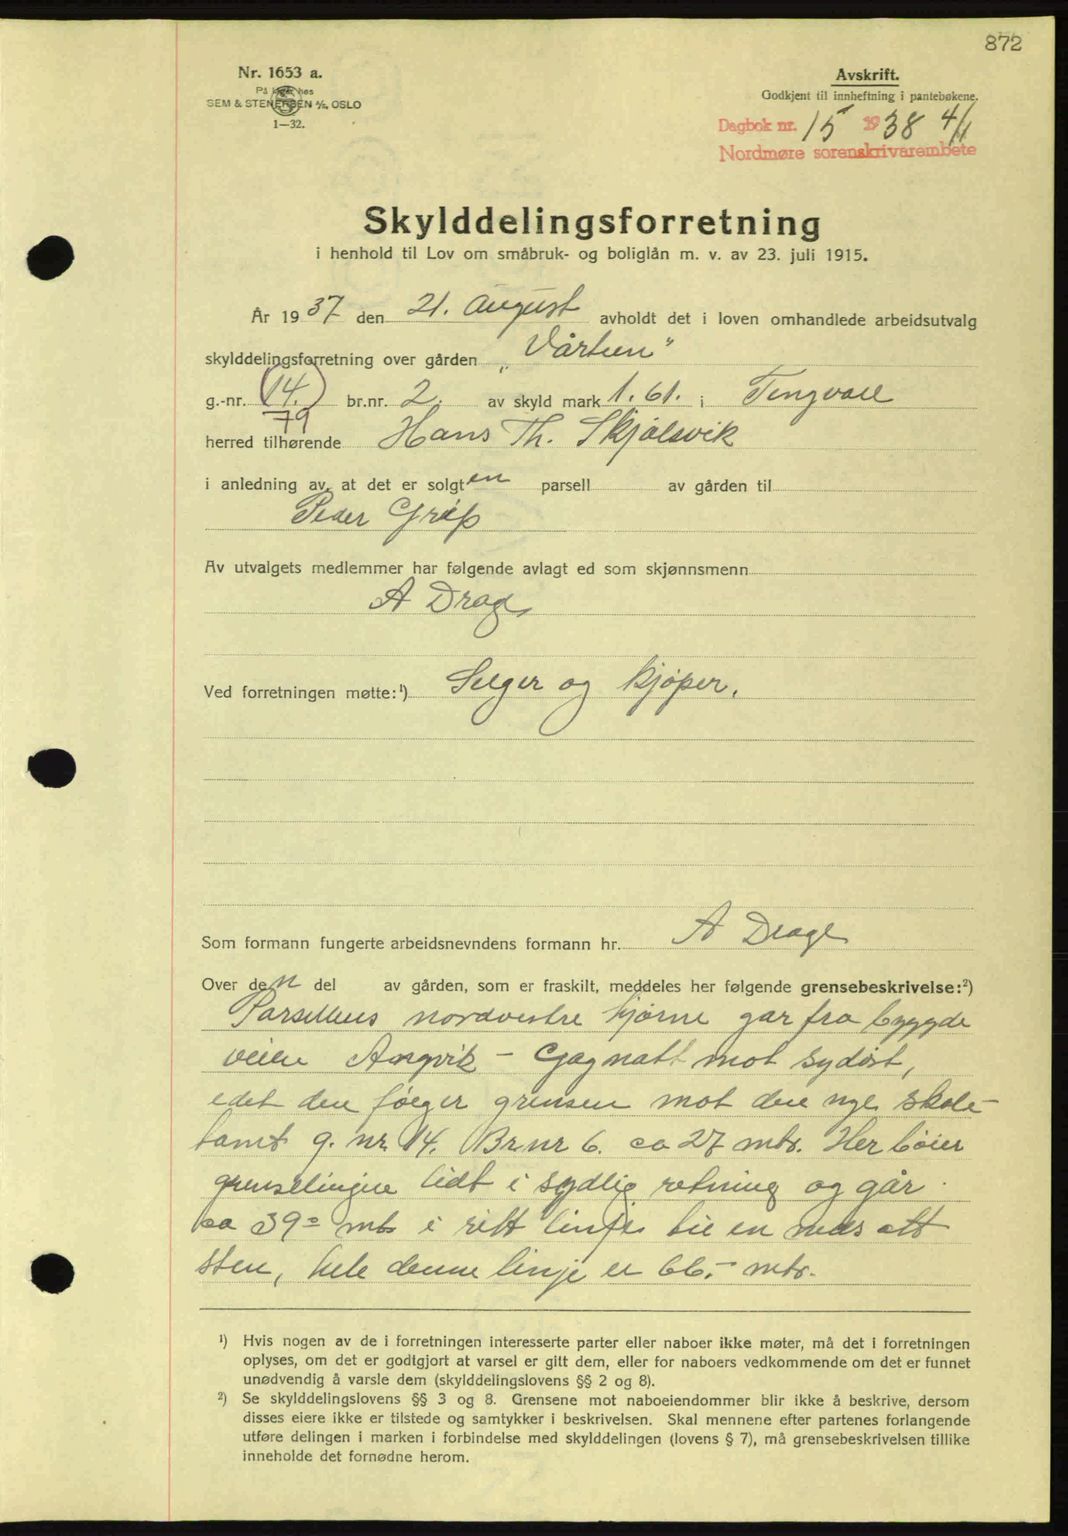 872
Nr. 1653 a.
På lager hos
SEM & STENERSEN A/S, OSLO
1—32.
Avskrift.
Godkjent til innheftning i pantebøkene.
Dagbok nr. 15 1938 4/1
Nordmøre sorenskrivarembete
Skylddelingsforretning
i henhold til Lov om småbruk- og boliglån m. v. av 23. juli 1915.
År 1937 den 21. August avholdt det i loven omhandlede arbeidsutvalg
skylddelingsforretning over gården „Vårtun"
g.-nr. (14.) br.nr. 2. av skyld mark 1.61. i Tingvoll
79
herred tilhørende Hans Th. Skjølsvik
i anledning av, at det er solgt en parsell av gården til
Peder Grøp
Av utvalgets medlemmer har følgende avlagt ed som skjønnsmenn
A Drage
Ved forretningen møtte:¹) Selger og kjøper.
Som formann fungerte arbeidsnevndens formann hr. A Drage
Over den del av gården, som er fraskilt, meddeles her følgende grensebeskrivelse:²)
Parsellens nordvestre hjørne går fra bygde
veien Angvik – Gagnatt mot sydøst,
idet den følger grensen mot den nye skole-
tomt g. nr. 14. Br.nr 6. ca 27 mtr. Her bøier
grenselinjen lidt i sydlig retning og går
ca 39 mtr i rett linje til en nedsatt
sten, hele denne linje er 66,- mtr.
¹) Hvis nogen av de i forretningen interesserte parter eller naboer ikke møter, må det i forretningen
oplyses, om det er godtgjort at varsel er gitt dem, eller for naboers vedkommende om det er funnet
unødvendig å varsle dem (skylddelingslovens §§ 2 og 8).
²) Se skylddelingslovens §§ 3 og 8. Grensene mot naboeiendommer blir ikke å beskrive, dersom
disses eiere ikke er tilstede og samtykker i beskrivelsen. Skal mennene efter partenes forlangende
utføre delingen i marken i forbindelse med skylddelingen (lovens § 7), må grensebeskrivelsen tillike
inneholde det fornødne herom.